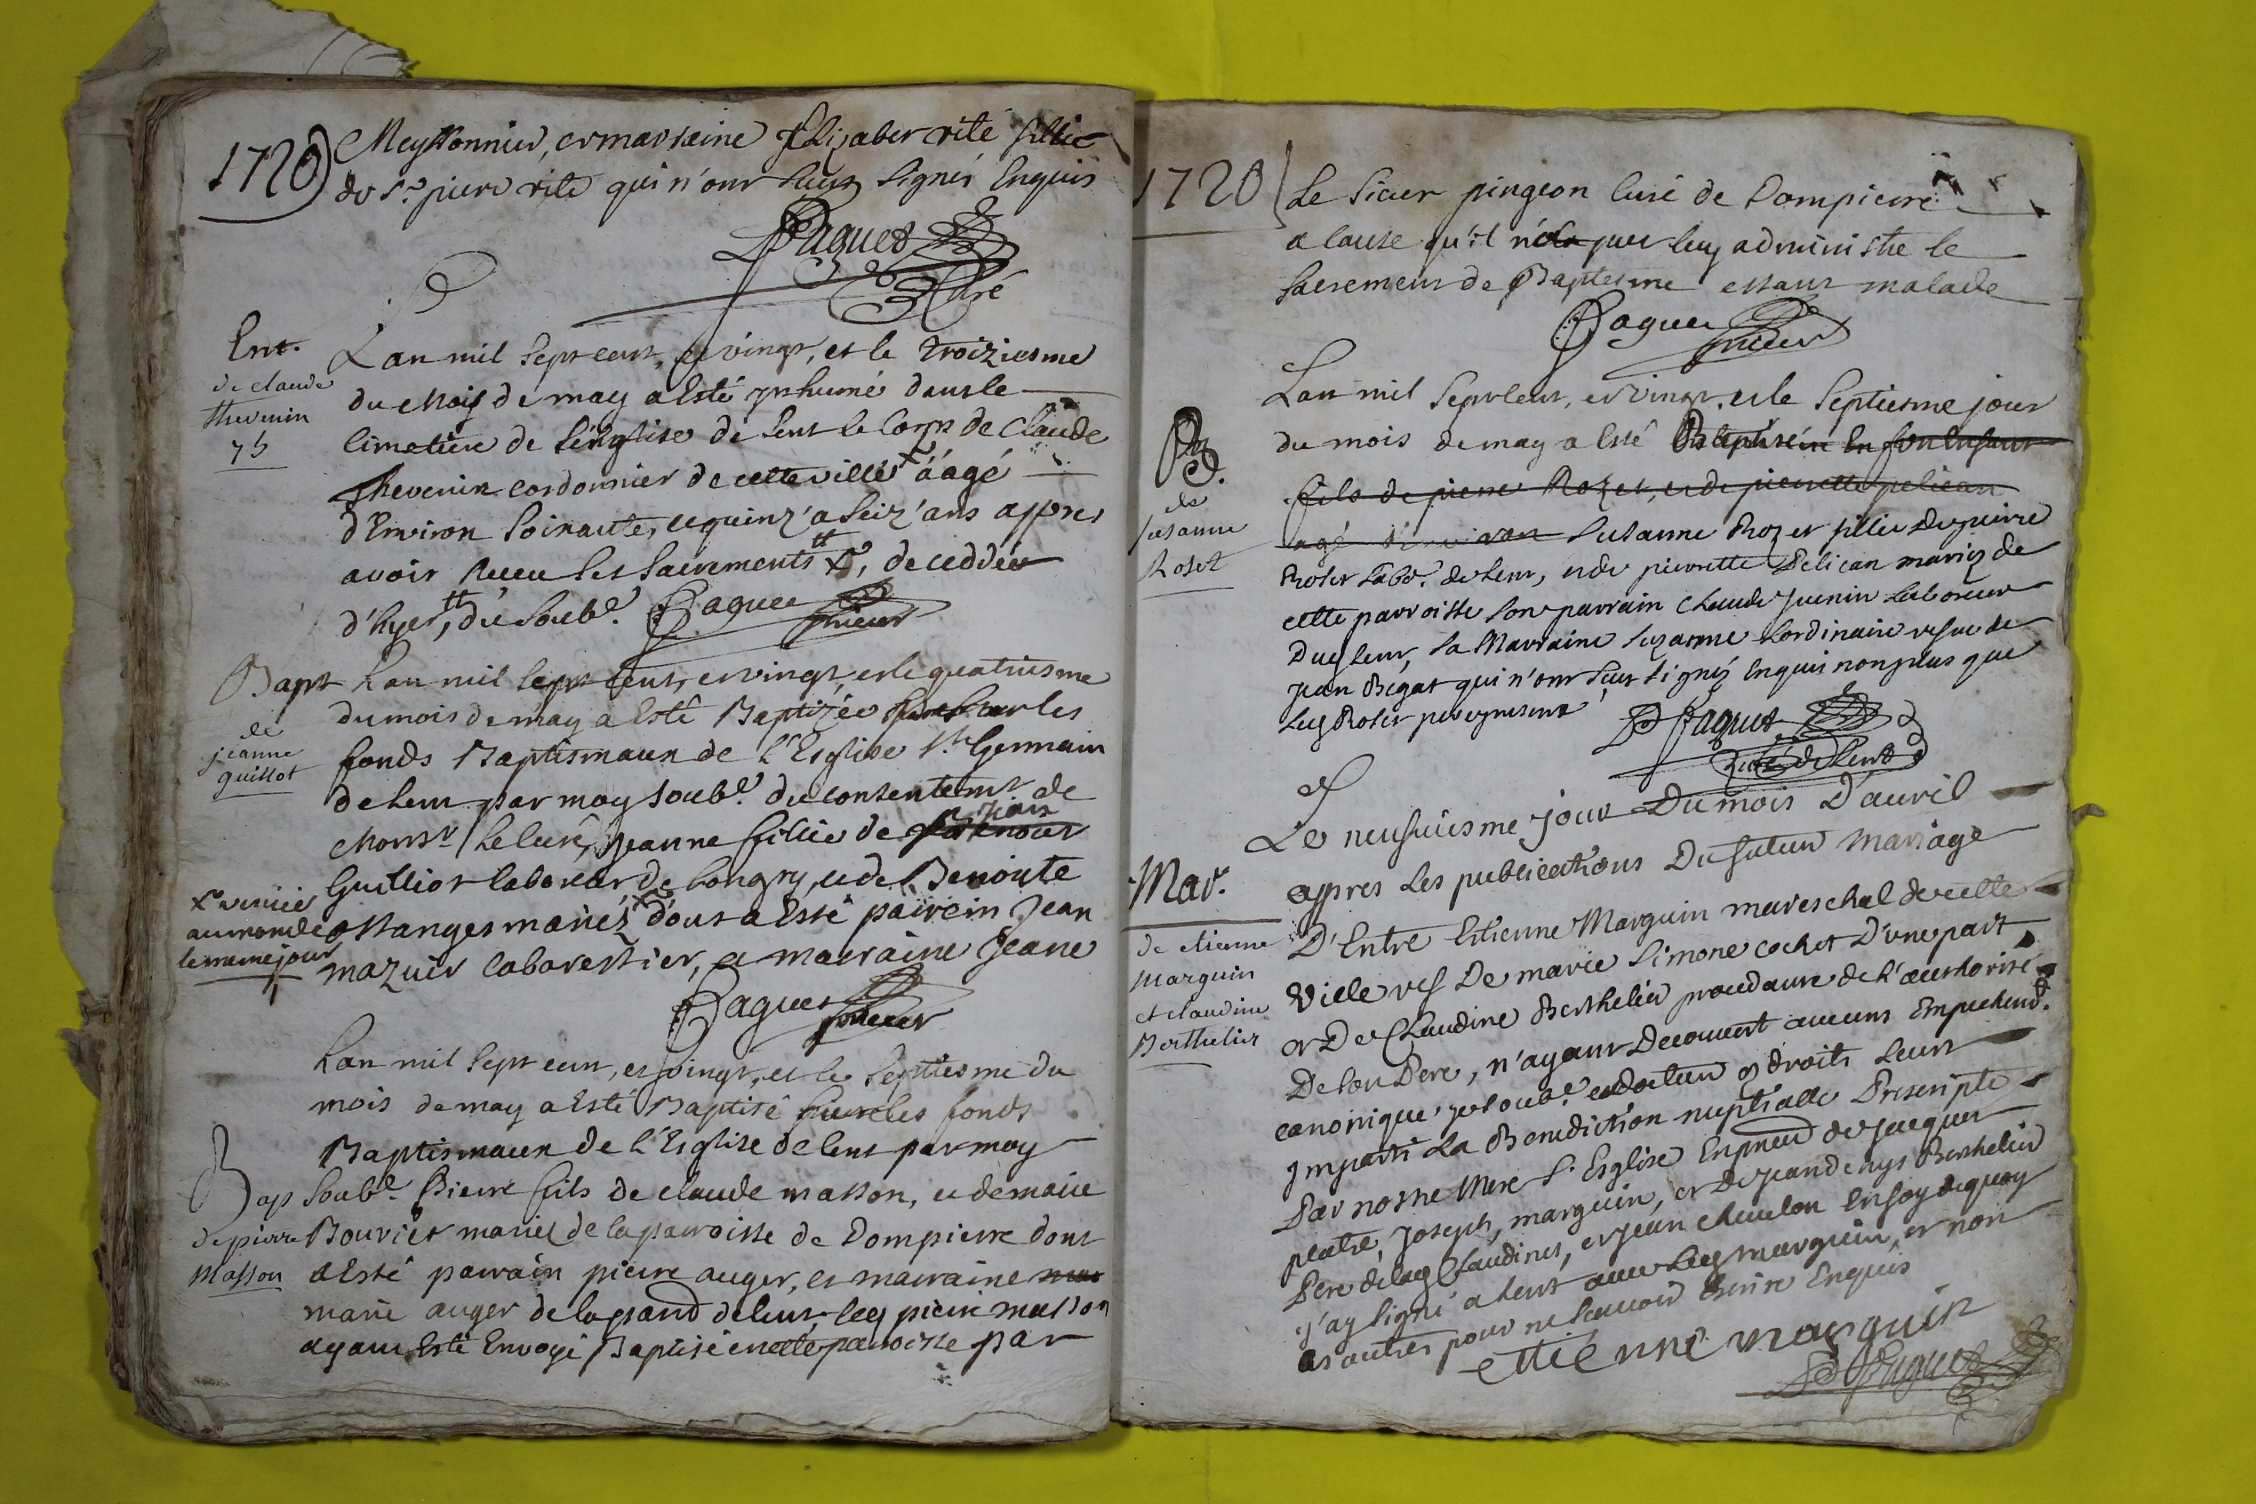 1720
Meyssonnier, et marraine Elizabet rite fillie
de Sr. pierre rite qui n'ont sceus signés Enquis
D Paquet
Curé
Ent.
de claude
thevenin
75
L'an mil sept cent, et vingt, et le troiziesme
du mois de may a Esté ynhumé dans le
Cimetiere de l'Esglise de lent le Corps de Claude
thevenin cordonnier de cette ville aagé
d'Environ soixante, et quinz' a seiz' ans appres
avoir Receu les sacrements, deceddée
d'hyer, die soub.e Paquet
prieur
Bapt
de
jeanne
guillot
L'an mil sept cent, et vingt, et le quatriesme
du mois de may a Esté Baptizée sur les
fonds Baptismaux de l'Esglise St. Germain
de lent par moy soub.e du consentemt de
Monsr. le Curé, Jeanne fillie de
jean
Guilliot laboreur de Longry, et de Benoite
Manges mariéz dont a Esté pairein Jean
mazuir cabarestier, et marraine Jeane
x venüe
au monde
le meme jour
Paquet
prieur
L'an mil sept cent, et vingt, et le septiesme du
mois de may a Esté Baptisé sur les fonds
Baptismaux de l'Esglise de lent par moy
Bap
de pierre
Masson
Soub.e Pierre fils de claude masson, et de marie
Bouvier mariés de la parroisse de Dompierre dont
a Esté parrain pierre auger, et marraine
marie auger de la grand de lent, led pierre masson
ayant Esté Envoyé Baptisé en cette parroisse par
1720
Le Sieur pingeon Curé de Dompierre
a cause qu'il n'a peu luy administre le
Sacrement de Baptesme estant malade
Paquet
prieur
B.
de
susanne
Roset
L'an mil sept cent, et vingt, et le septiesme jour
du mois de may a Esté Baptisé
fils de pierre Rozet, et de pierrette pelican
agé d'environ Susanne Rozet fillie de pierre
Roset Labo.r de lent, et de pierrette Pelican mariez de
cette parroisse son parrain Claude Juenin Laboreur
Dud lent, sa Marraine Suzanne Cordinaire vesue de
jean Begat qui n'ont sceus signéz Enquis non plus que
led Roset pere present D Paquet
Curé de lent
Le neufuiesme jour Du mois D'auril
Mar.
de etienne
Marguin
et claudine
Berthelier
appres les publications Du futur Mariage
D'Entre Etienne Marguin mareschal de cette
ville vef De marie Simone cochet D'une part
et De Claudine Berthelier procedante de l'authorité
De son Pere, n'ayant Decouvert aucuns Empechemt.
canonique, je soub.e docteur es droits leurs
Imparti La Benediction nuptialle Prescripte
Par nostre Mere Ste Esglise En presence de jacques
platre, Joseph, marguin, et de jean denys Berthelier
Pere de lad Claudine, et jean chaulon En foy de quoy
j'ay signé a lent avec led marguin, et non
les autres pour ne sçavoir Escrire Enquis
ettienne marguin
D Paquet